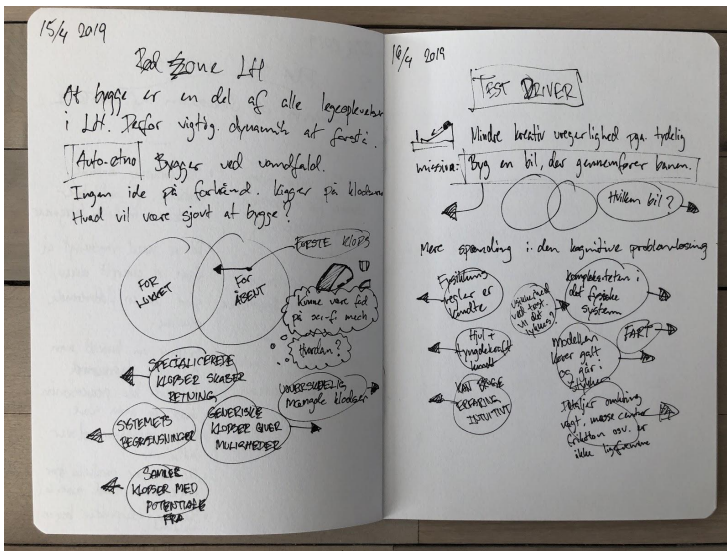 15/4 2019
Red Zone LH
At bygge er en del af alle legeoplevelser
i LH. Derfor vigtig dynamik at forstå.
Auto-etno Bygger ved vandfald.
Ingen ide på forhånd. Kigger på klodserne
Hvad vil være sjovt at bygge?
FØRSTE KLODS
FOR LUKKET
FOR ÅBENT
Kunne være fed
på sci-fi mech
Hvordan?
SPECIALICEREDE
KLODSER SKABER
RETNING
UOVERSKUELIG
mængde klodser
SYSTEMETS
BEGRÆNSNINGER
GENERISKE
KLODSER GIVER
MULIGHEDER
SAMLER
KLODSER MED
POTENTIALE
FRA
16/4 2019
TEST DRIVER
Mindre kreativ uregerlighed pga. tydelig
mission: Byg en bil, der gennemfører banen.
Hvilken bil?
Mere spænding i den kognitive problemløsning
Fysikkens
regler er
kendte
usikkerhed
ved test.
Vil det
lykkes?
Kompleksiteten i
det fysiske
system
Hjul +
tyngdekraft
kendt
modellen
kører galt
og går i
stykker
FART
KAN BRUGE
ERFARING
INTUITIVT
Detaljer omkring
vægt, masse center
friktion osv. er
ikke ligefremme